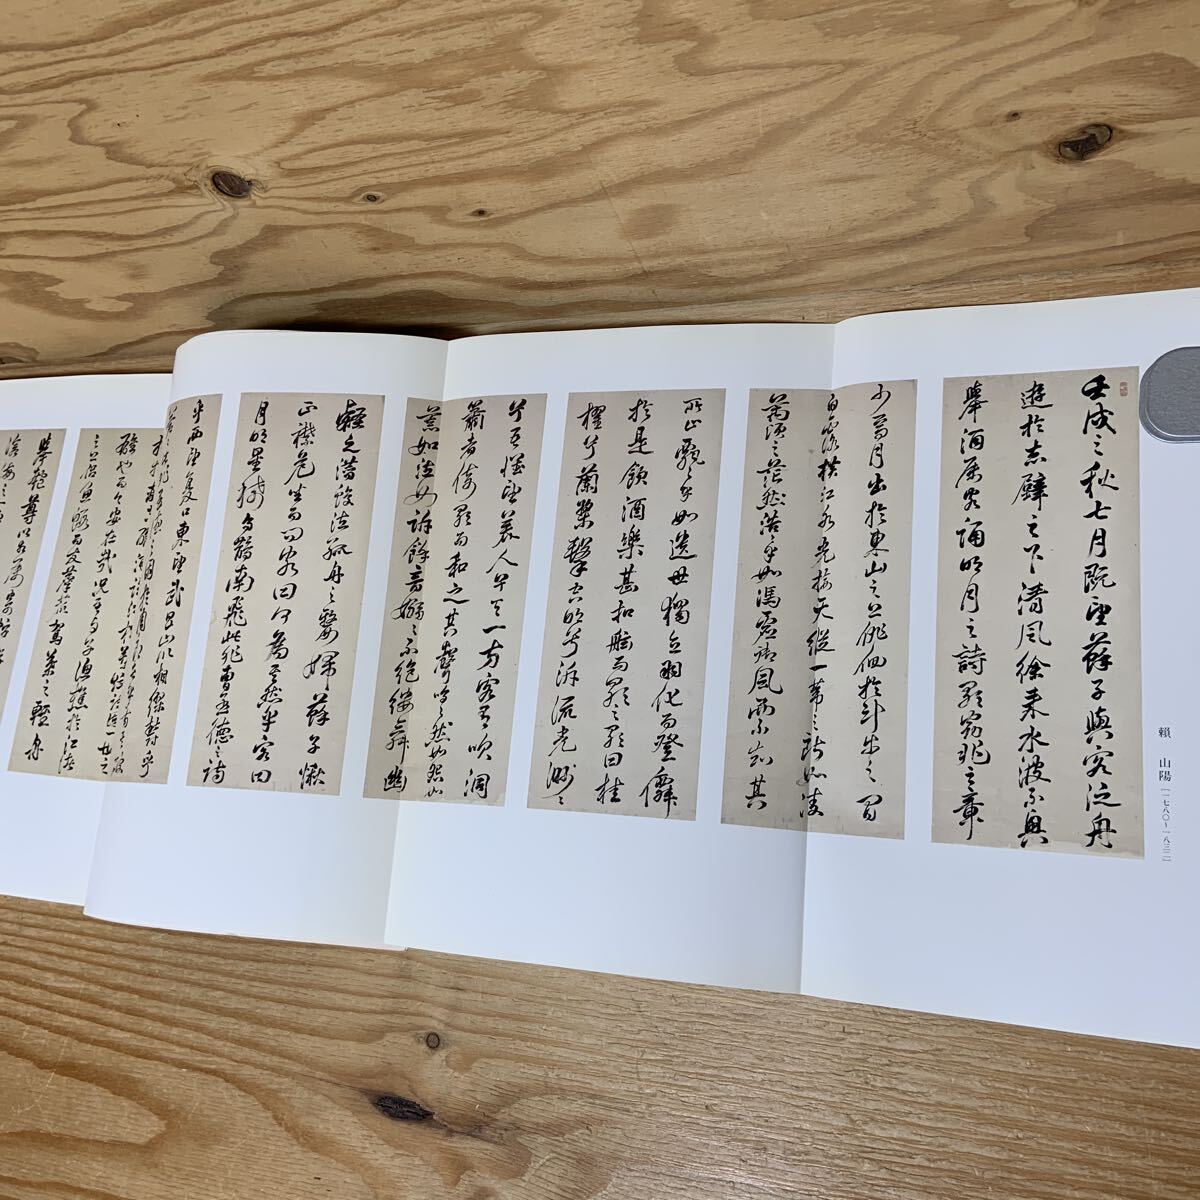 賴 山陽 [一七八〇~一八三二]
壬戌之秋七月既望蘇子與客泛舟
遊於赤壁之下清風徐来水波不興
擧酒属客誦明月之詩歌窈窕之章
少焉月出於東山之上徘徊於斗牛之間
白露横江水光接天縦一葦之所如凌
萬頃之茫然浩乎如馮虚御風而不知其
所止飄々乎如遺世獨立羽化而登僊
於是飲酒樂甚扣舷而歌之歌曰桂
櫂兮蘭槳撃空明兮泝流光渺々
兮吾懐望美人兮天一方客有吹洞
簫者倚歌而和之其聲嗚々然如怨如
慕如泣如訴餘音嫋々不絶縷舞幽
壑之潜蛟泣孤舟之嫠婦蘇子愀
正襟危坐而問客曰何為其然乎客曰
月明星稀烏鵲南飛此非曹孟徳之詩
乎西望夏口東望武昌山川相繆鬱乎
雄也而今安在哉况吾与子漁樵於江渚
之上侶魚鰕而友麋鹿駕葉之軽舟
擧匏尊以